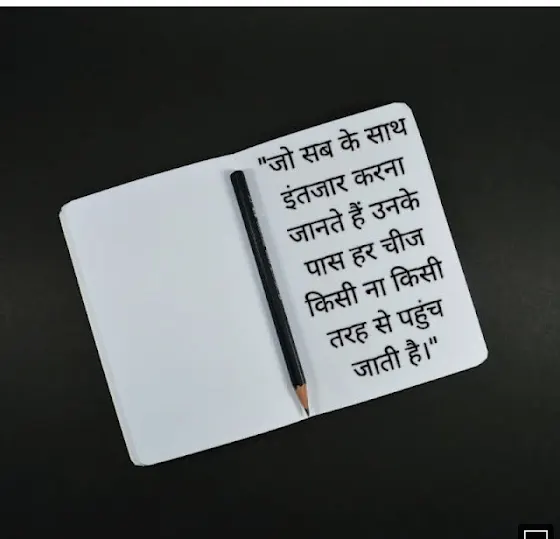 "जो सब के साथ
इंतजार करना
जानते हैं उनके
पास हर चीज
किसी ना किसी
तरह से पहुंच
जाती है।"